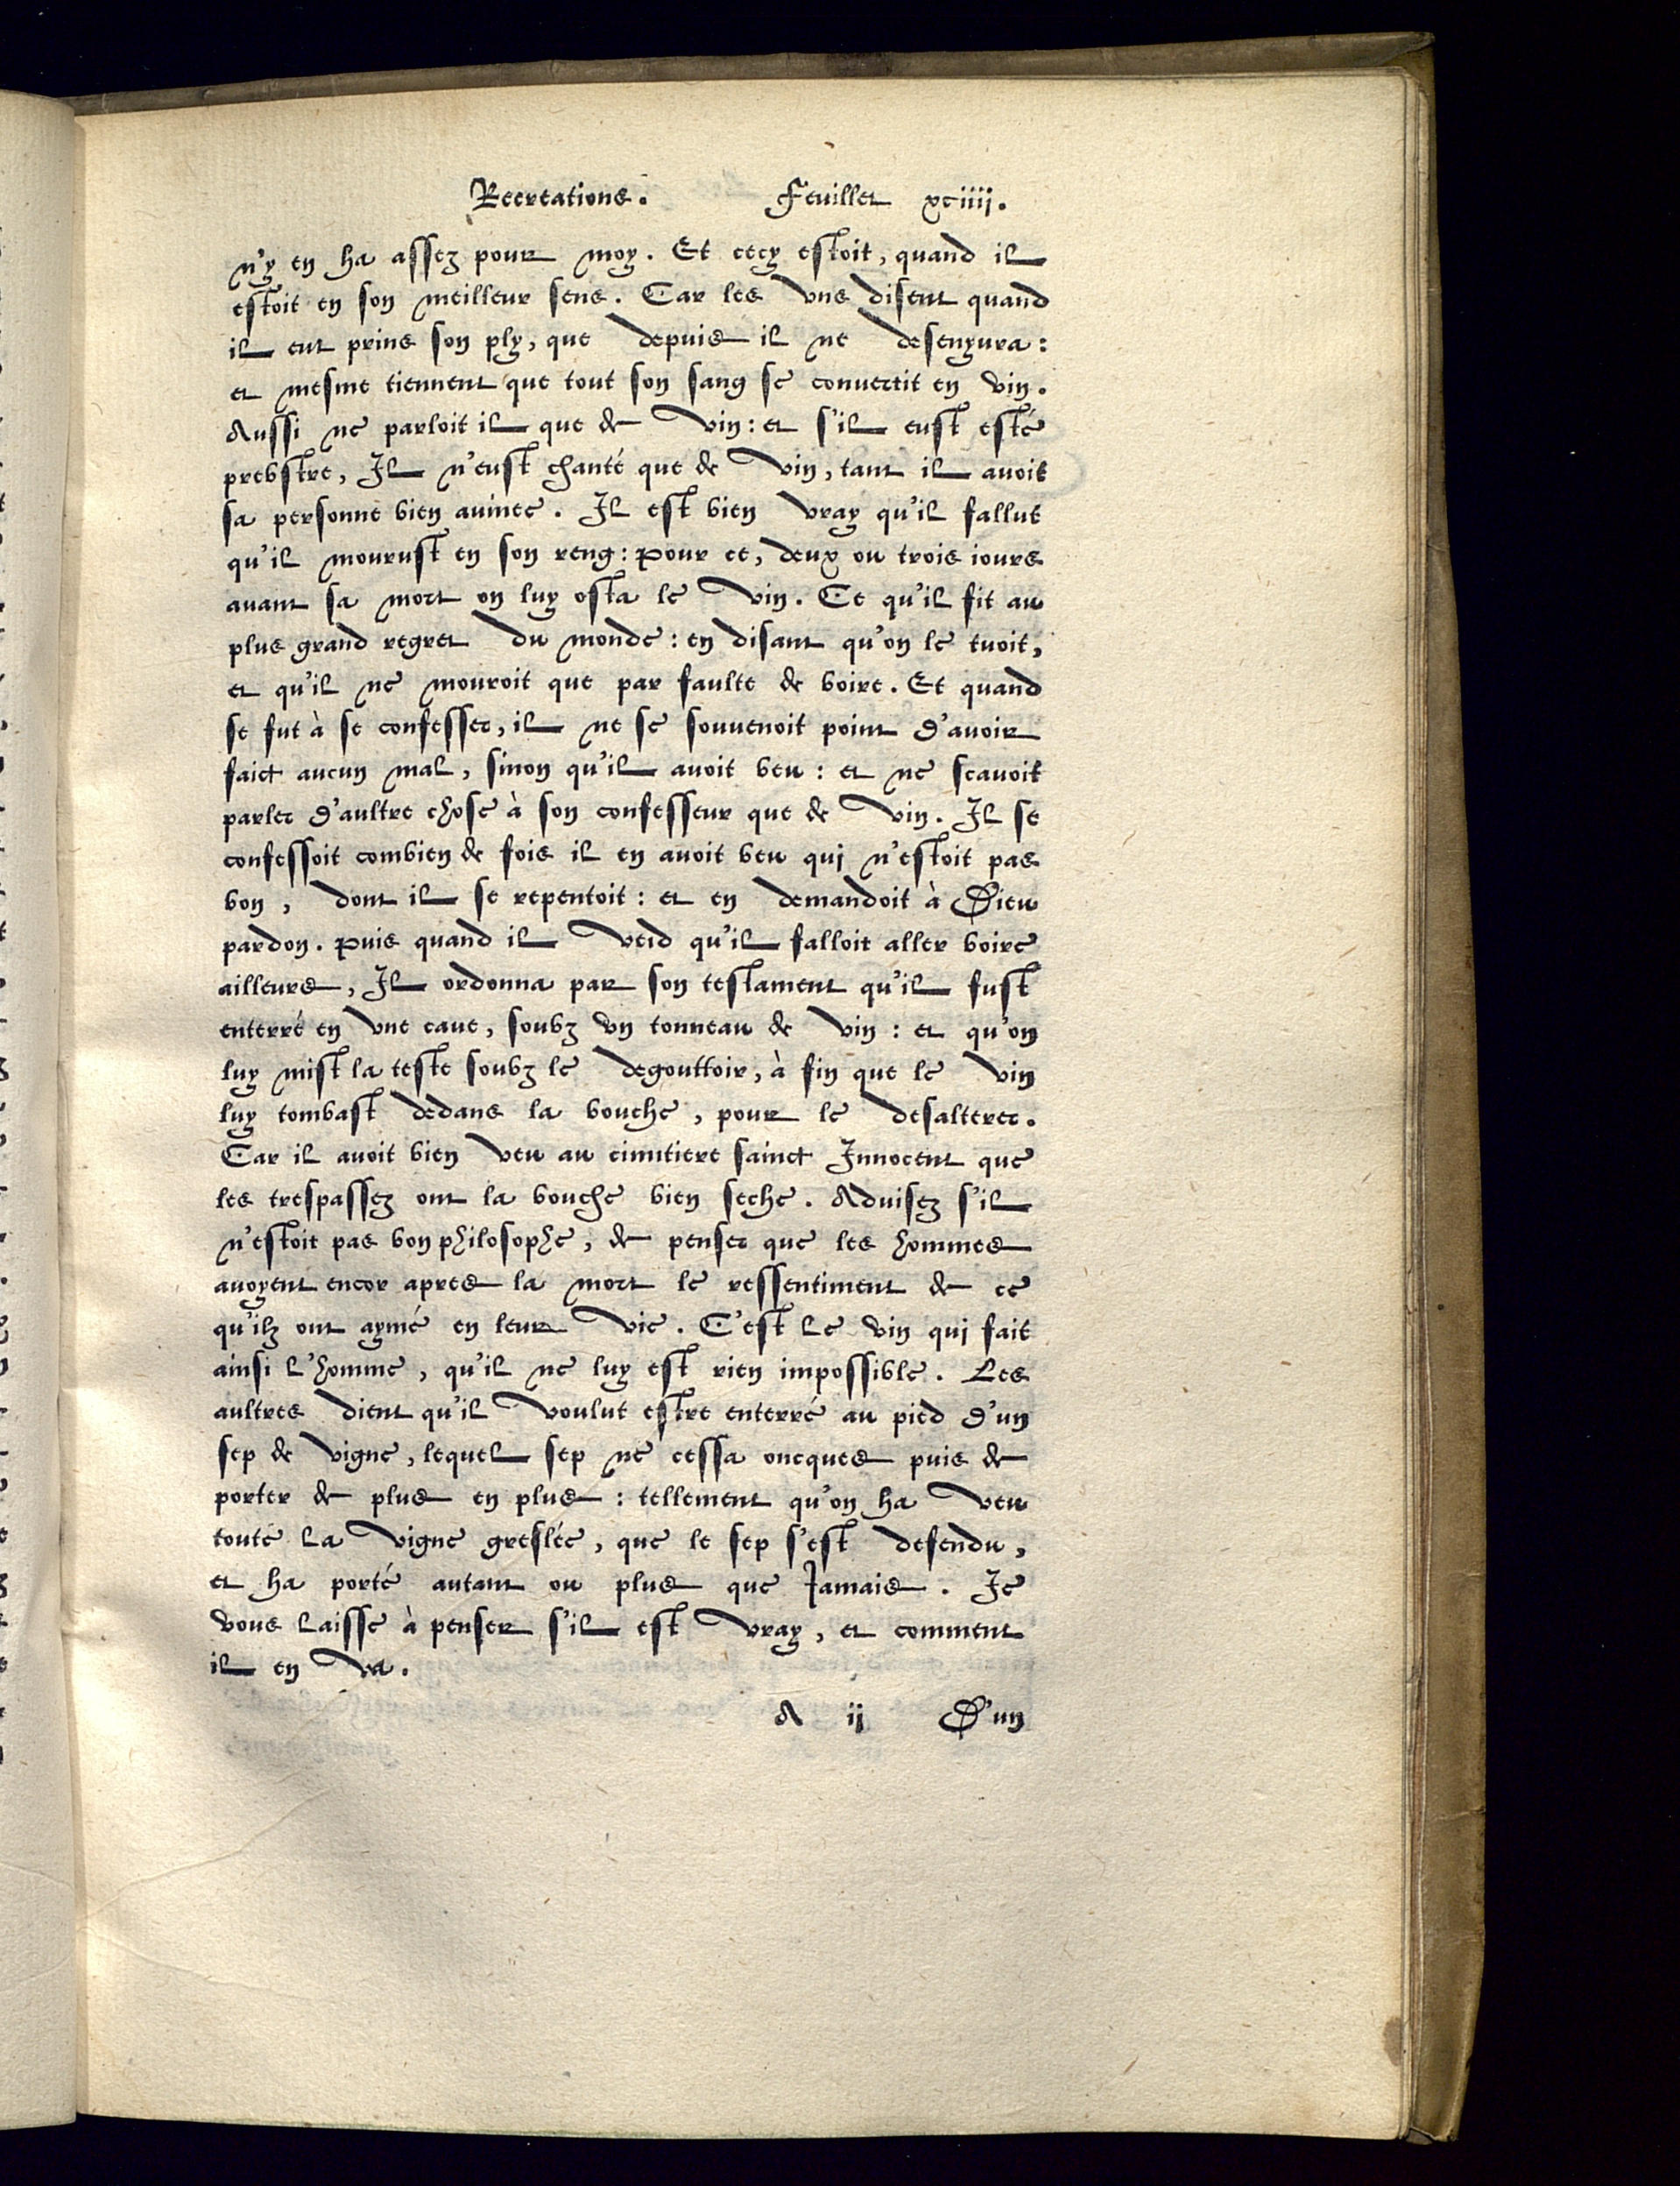 Recreations. Feuillet xciiij.
n'y en ha assez pour moy. Et cecy estoit, quand il
estoit en son meilleur sens. Car les vns disent quand
il eut prins son ply, que depuis il ne desenyura:
et mesme tiennent que tout son sang se conuertit en vin.
Aussi ne parloit il que de vin: et s'il eust esté
prebstre, Il n'eust chanté que de vin, tant il auoit
sa personne bien auinee. Il est bien vray qu'il fallut
qu'il mourust en son reng: Pour ce, deux ou trois iours
auant sa mort on luy osta le vin. Ce qu'il fit au
plus grand regret du monde: en disant qu'on le tuoit,
et qu'il ne mouroit que par faulte de boire. Et quand
se fut à se confesser, il ne se souuenoit point d'auoir
faict aucun mal, sinon qu'il auoit beu: et ne scauoit
parler d'aultre chose à son confesseur que de vin. Il se
confessoit combien de fois il en auoit beu qui n'estoit pas
bon, dont il se repentoit: et en demandoit à Dieu
pardon. Puis quand il veid qu'il falloit aller boire
ailleurs, Il ordonna par son testament qu'il fust
enterré en vne caue, soubz vn tonneau de vin: et qu'on
luy mist la teste soubz le degouttoir, à fin que le vin
luy tombast dedans la bouche, pour le desalterer.
Car il auoit bien veu au cimitiere sainct Innocent que
les trespassez ont la bouche bien seche. Aduisez s'il
n'estoit pas bon philosophe, de penser que les hommes
auoyent encor apres la mort le ressentiment de ce
qu'ilz ont aymé en leur vie. C'est le vin qui fait
ainsi l'homme, qu'il ne luy est rien impossible. Les
aultres dient qu'il voulut estre enterré au pied d'un
sep de vigne, lequel sep ne cessa oncques puis de
porter de plus en plus: tellement qu'on ha veu
toute la vigne greslée, que le sep s'est defendu,
et ha porté autant ou plus que Iamais. Ie
vous laisse à penser s'il est vray, et comment
il en va.
A ij D'un